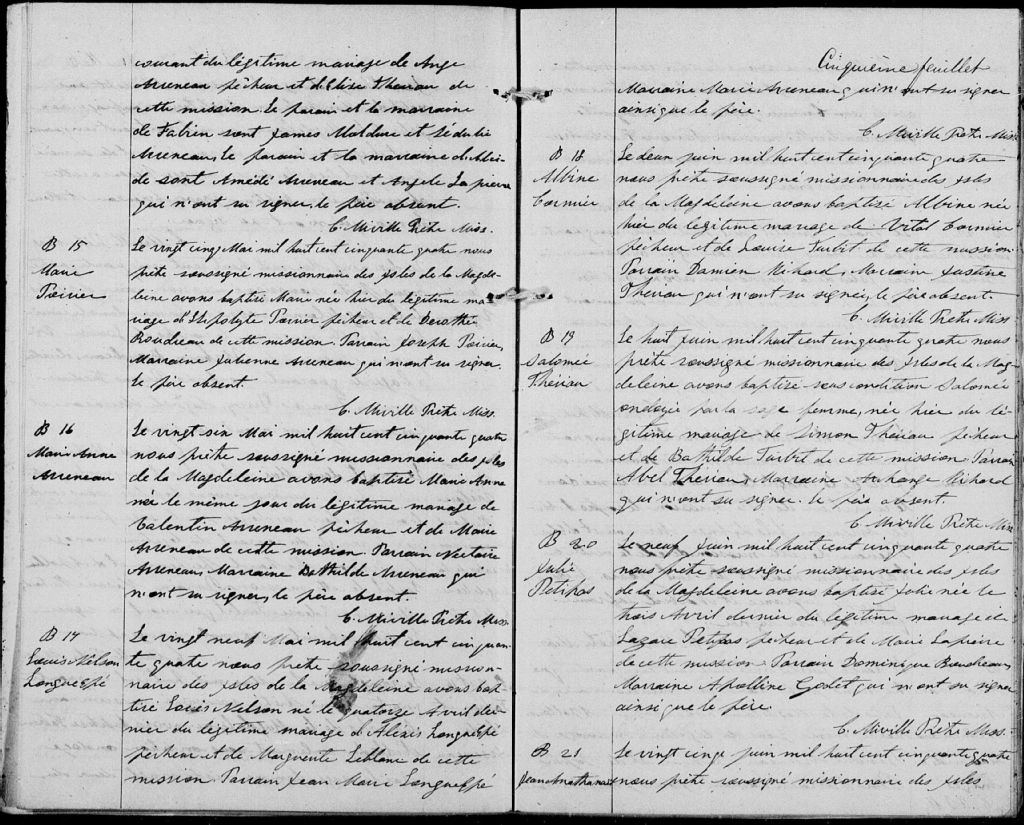 courant du légitime mariage de Ange
Arseneau pêcheur et d'Elise Thériau de
cette mission. Le parain et la marraine
de Fabien sont James Moldure et Sédulie
Arseneau, le parain et la marraine d'Alci-
de sont Amédé Arseneau et Angele Lapierre
qui n'ont su signer, le père absent.
C. Miville Prêtre Miss.
B 15
Marie
Poirier
Le vingt cinq Mai mil huit cent cinquante quatre nous
prêtre soussigné missionnaire des Isles de la Magde-
leine avons baptisé Marie née hier du légitime ma-
riage d'Hypolyte Poirier pêcheur et de Dorothé
Boudreau de cette mission. Parrain Joseph Poirier,
Marraine Julienne Arseneau qui n'ont su signer.
le père absent
C. Miville Prêtre Miss.
B 16
Marie Anne
Arseneau
Le vingt six Mai mil huit cent cinquante quatre
nous prêtre soussigné missionnaire des Isles
de la Magdeleine avons baptisé Marie Anne
née le même jour du légitime mariage de
Valentin Arseneau pêcheur et de Marie
Arseneau de cette mission. Parrain Nectaire
Arseneau, Marraine Bathilde Arseneau qui
n'ont su signer, le père absent.
C. Miville Prêtre Miss.
B 17
Louis Nelson
Languespé
Le vingt neuf Mai mil huit cent cinquan-
te quatre nous prêtre soussigné mission-
naire des Isles de la Magdeleine avons bap-
tisé Louis Nelson né le quatorze Avril der-
nier du légitime mariage d'Alexis Longuespé
pêcheur et de Marguerite Leblanc de cette
mission. Parrain Jean Marie Longuespé
Cinquième feuillet
Marraine Marie Arseneau qui n'ont su signer
ainsi que le père.
C. Miville Prêtre Miss.
B 18
Albine
Cormier
Le deux juin mil huit cent cinquante quatre
nous prêtre soussigné missionnaire des Isles
de la Magdeleine avons baptisé Albine née
hier du légitime mariage de Vital Cormier
pêcheur et de Louise Turbit de cette mission.
Parrain Damien Richard, Marraine Susanne
Thériau qui n'ont su signer, le père absent.
C. Miville Prêtre Miss
B 19
Salomée
Thériau
Le huit Juin mil huit cent cinquante quatre nous
prêtre soussigné missionnaire des Isles de la Mag-
deleine avons baptisé sous condition Salomée
ondoyée par la sage femme, née hier du lé-
gitime mariage de Simon Thériau pêcheur
et de Bathilde Turbit de cette mission. Parrain
Abel Thériau, Marraine Archange Richard
qui n'ont su signer. le père absent
C. Miville Prêtre Miss.
B 20
Julie
Petitpas
Le neuf Juin mil huit cent cinquante quatre
nous prêtre soussigné missionnaire des Isles
de la Magdeleine avons baptisé Julie née le
trois Avril dernier du légitime mariage de
Lazare Petitpas pêcheur et de Marie Lapierre
de cette mission. Parrain Dominique Boudreau,
Marraine Apolline Godet qui n'ont su signer
ainsi que le père.
C. Miville Prêtre Miss.
B 21
Le vingt cinq juin mil huit cent cinquante quatre
nous prêtre soussigné missionnaire des Isles